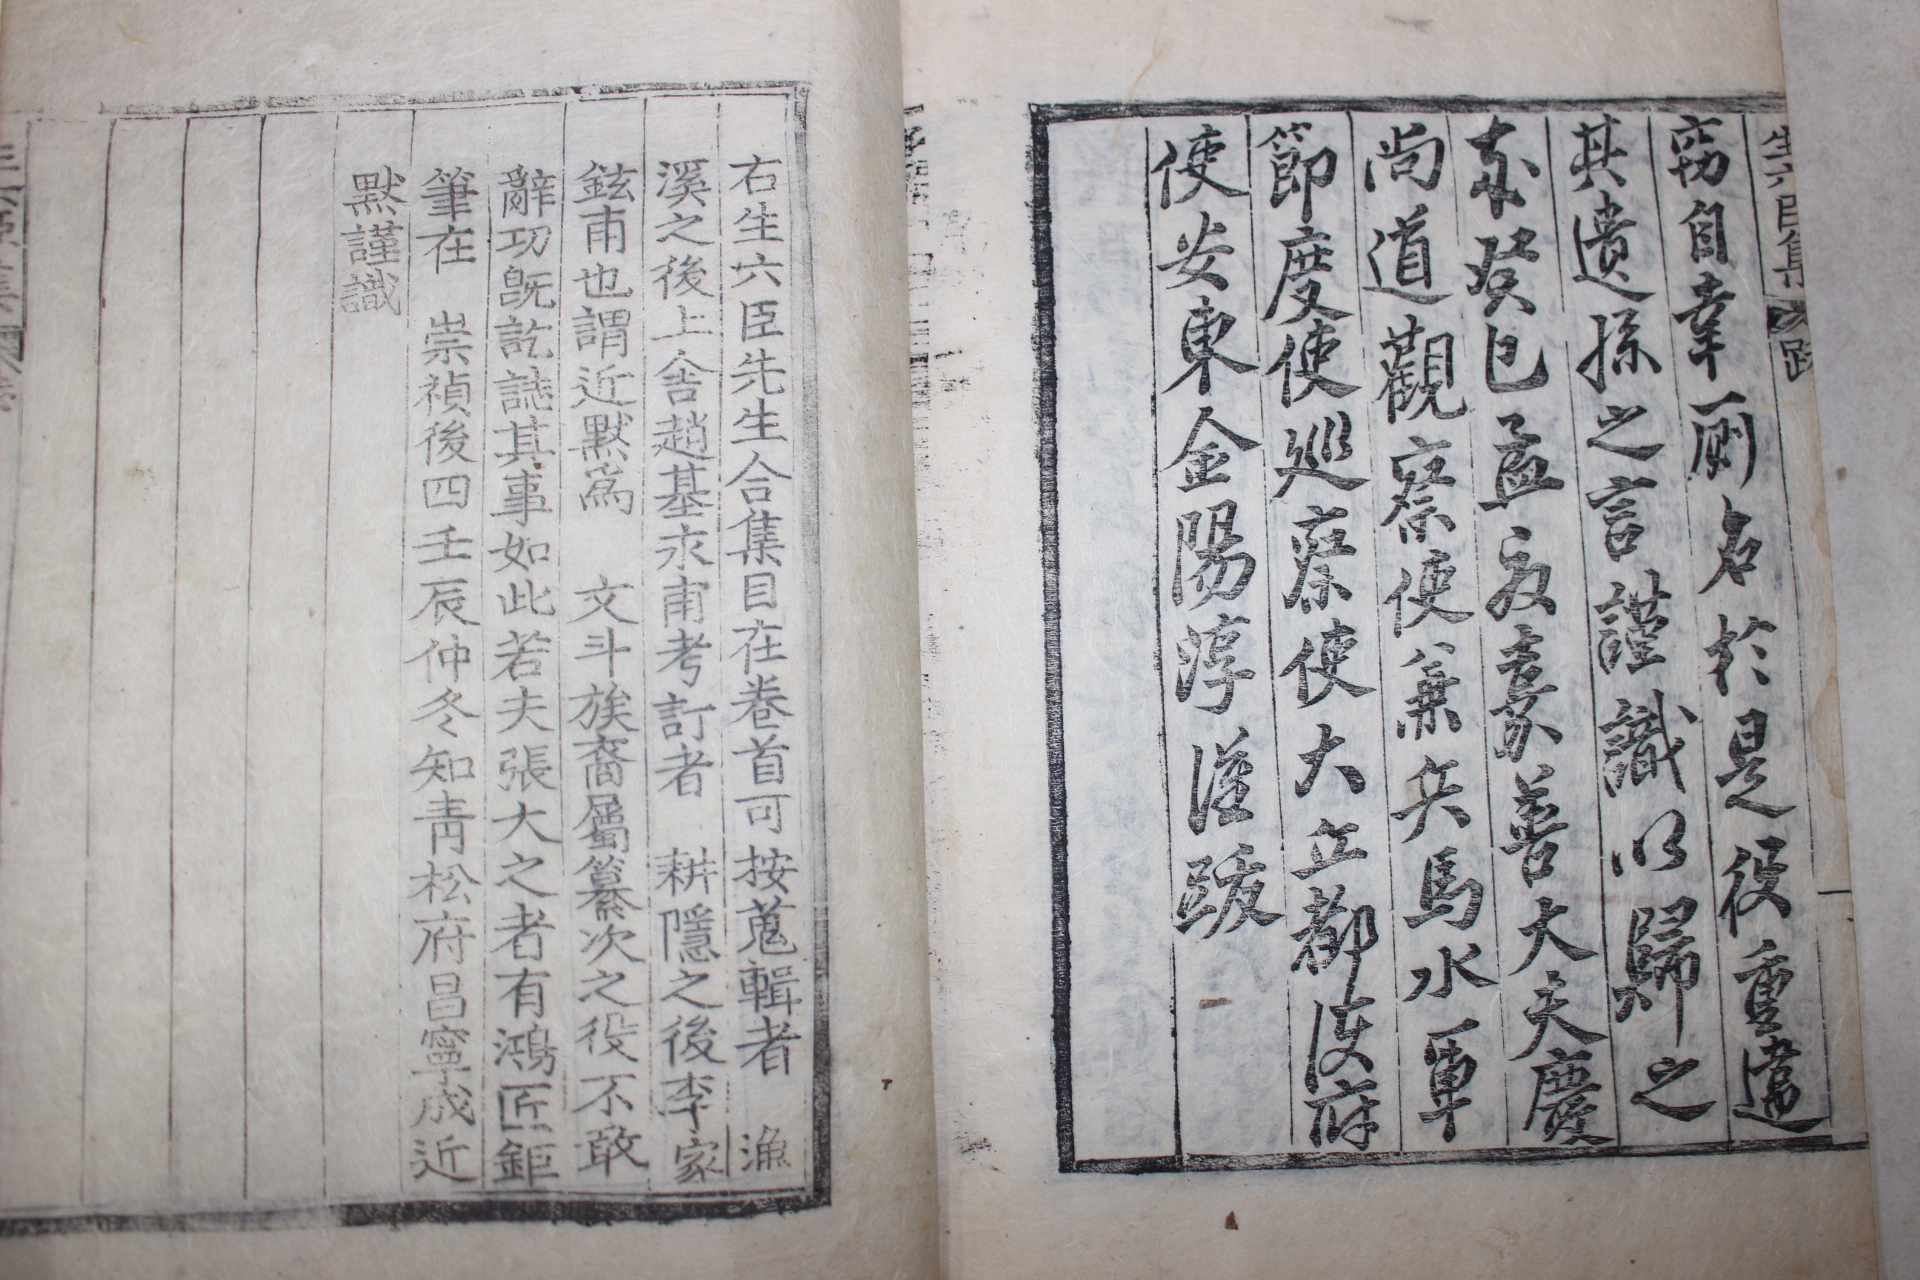 生六臣集 跋
竊自幸厠名於是役重違
其遺孫之言謹識以歸之
癸巳孟夏嘉善大夫慶
尚道觀察使兼兵馬水軍
節度使巡察使大丘都護府
使安東金陽淳謹跋
右生六臣先生合集目在卷首可按蒐輯者 漁
溪之後上舍趙基永甫考訂者 耕隱之後李家
鉉甫也謂近默爲 文斗族裔屬纂次之役不敢
辭功旣訖誌其事如此若夫張大之者有鴻匠鉅
筆在 崇禎後四壬辰仲冬知青松府昌寧成近
默謹識